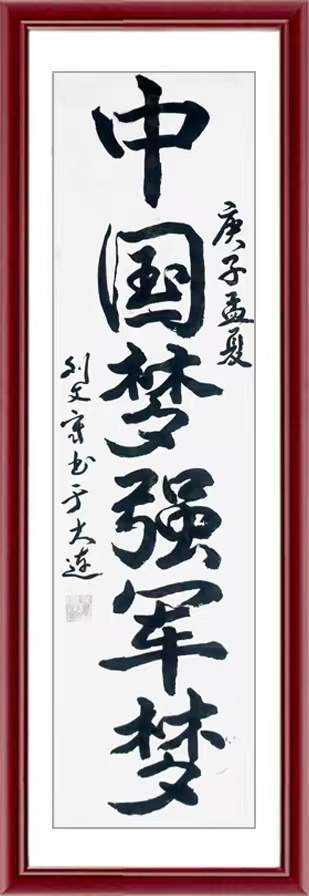 庚子孟夏
中国梦强军梦
刘文家书于大连